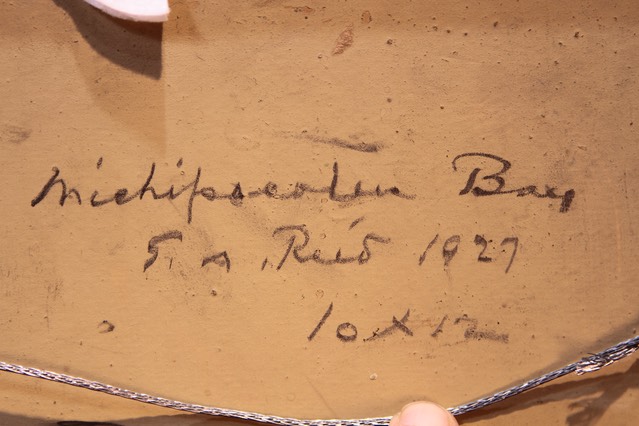 Michipocoten Bay
G. A. Reid 1927
10 X 12